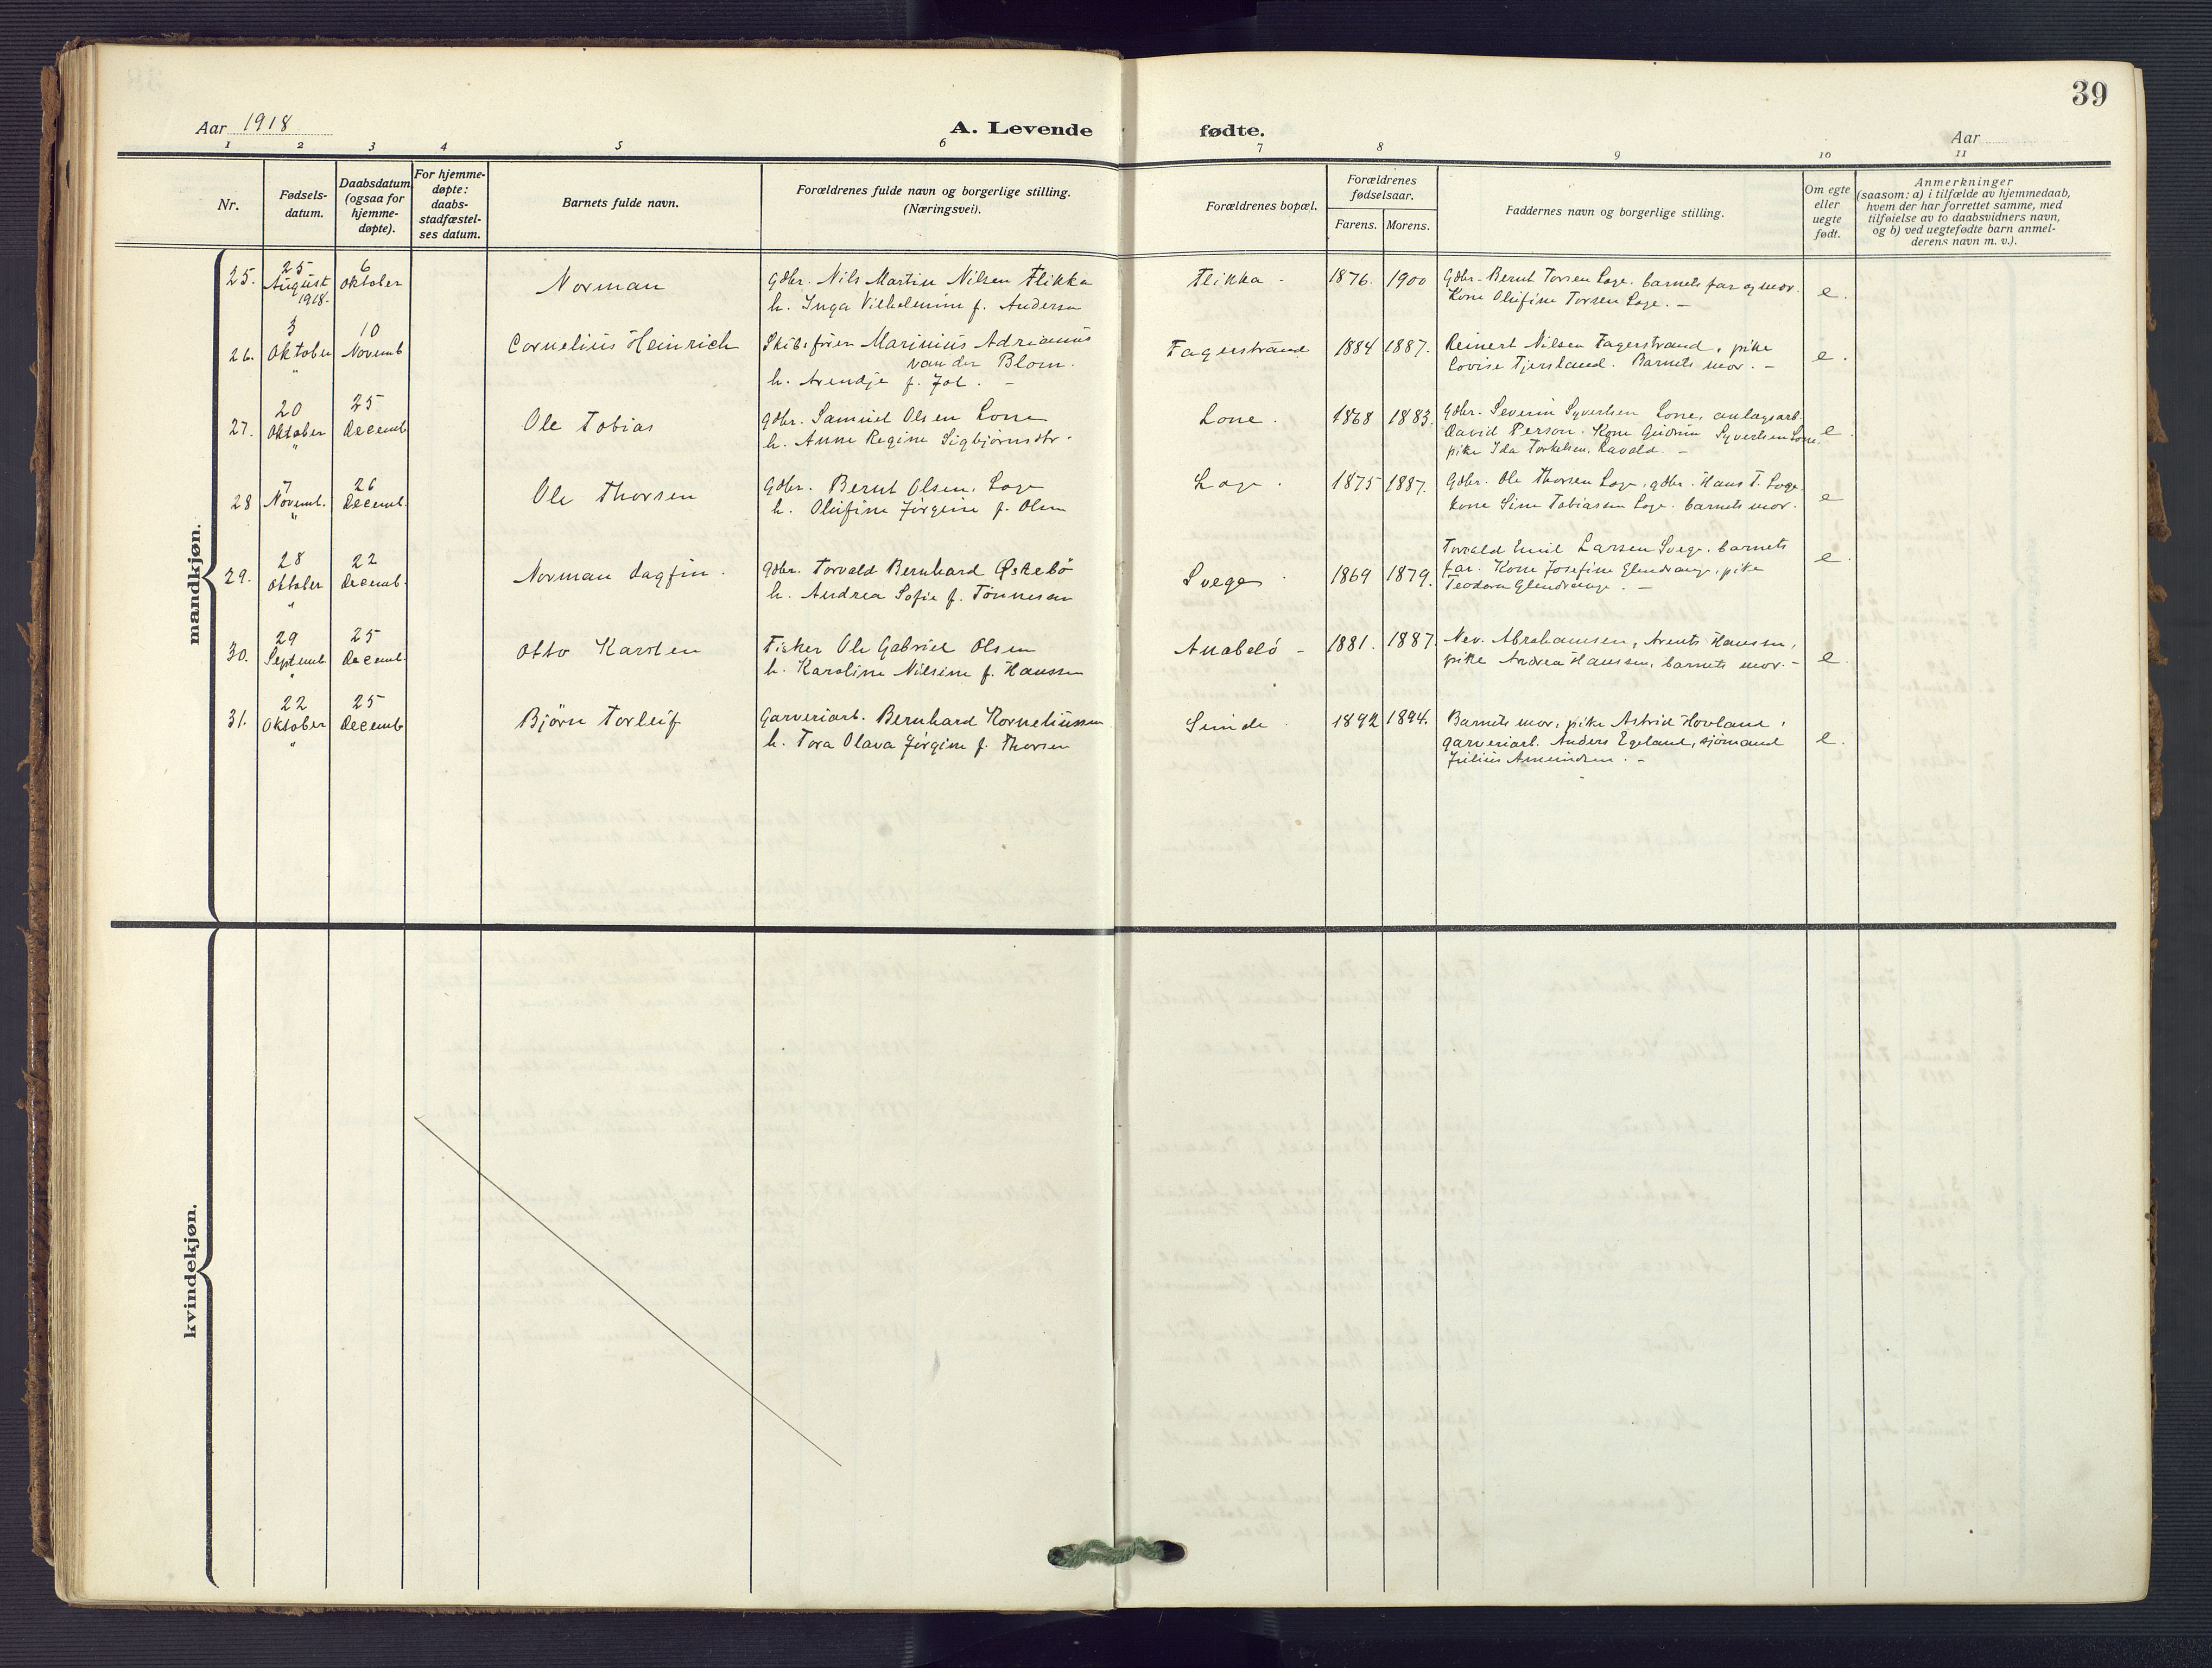 39
Aar 1918
A. Levende fødte.
Aar
1 2 3 4 5 6 7 8 9 10 11
Nr.
Fødsels-
datum.
Daabsdatum
(ogsaa for
hjemme-
døpte).
For hjemme-
døpte:
daabs-
stadfæstel-
ses datum.
Barnets fulde navn.
Forældrenes fulde navn og borgerlige stilling.
(Næringsvei).
Forældrenes bopæl.
Forældrenes
fødselsaar.
Farens. Morens.
Faddernes navn og borgerlige stilling.
Om egte
eller
uegte
født.
Anmerkninger
(saasom: a) i tilfælde av hjemmedaab,
hvem der har forrettet samme, med
tilføielse av to daabsvidners navn,
og b) ved uegtefødte barn anmel-
derens navn m. v.).
mandkjøn.
25.
25
August
1918.
6
Oktober
Norman
Gdbr. Nils Martin Nilsen Flikka
h. Inga Vilhelmine f. Andersen
Flikka -
1876. 1900
Gdbr. Bernt Torsen Loge. barnets far og mor.
Kone Olufine Torsen Loge. -
e.
26.
3
Oktober
"
10
Novemb
Cornelius Heinrich
Skibsfører Marinius Adrianus
van der Blom.
h. Arendje f. Jol. -
Fagerstrand
1884 1887.
Reinert Nilsen Fagerstrand, pike
Lovise Tjersland. Barnets mor. -
e.
27.
20
Oktober
"
25
Decemb
Ole Tobias
Gdbr. Samuel Olsen Lone
h. Anne Regine Sigbjørnsdtr.
Lone.
1868 1883.
Gdbr. Severin Syvertsen Lone, anlægsarb.
David Person. Kone Gudrun Syvertsen Lone.
pike Ida Torkelsen, Lavold. -
e.
28
7
Novemb.
"
26
Decemb.
Ole Thorsen
Gdbr. Bernt Olsen, Loge
h. Olufine Jørgine f. Olsen
Loge.
1875 1887.
Gdbr. Ole Thorsen Loge, gdbr. Hans T. Loge.
kone Sine Tobiassen Loge. barnets mor.
e
29.
28
Oktober
"
22
Decemb.
Norman Dagfin.
Gdbr. Torvald Bernhard Øskebö
h. Andrea Sofie f. Tönnesen
Svege
1869 1879.
Torvald Emil Larsen Svege. barnets
far. Kone Josefine Glendrange, pike
Teodora Glendrange. -
e.
30.
29
Septemb.
"
25
Decemb.
Otto Karsten
Fisker Ole Gabriel Olsen
h. Karoline Nilsine f. Hanssen
Anabelö -
1881. 1887
Nev. Abrahamsen, Arents Hanssen,
pike Andrea Hanssen, barnets mor. -
e.
31.
22
Oktober
"
25
Decemb
Björn Torleif
Garveriarb. Bernhard Korneliussen
h. Tora Olava Jörgine f. Thorsen
Sunde.
1892 1894.
Barnets mor, pike Astrid Hovland,
garveriarb. Anders Egeland, sjömand
Julius Amundsen. -
e.
kvindekjøn.